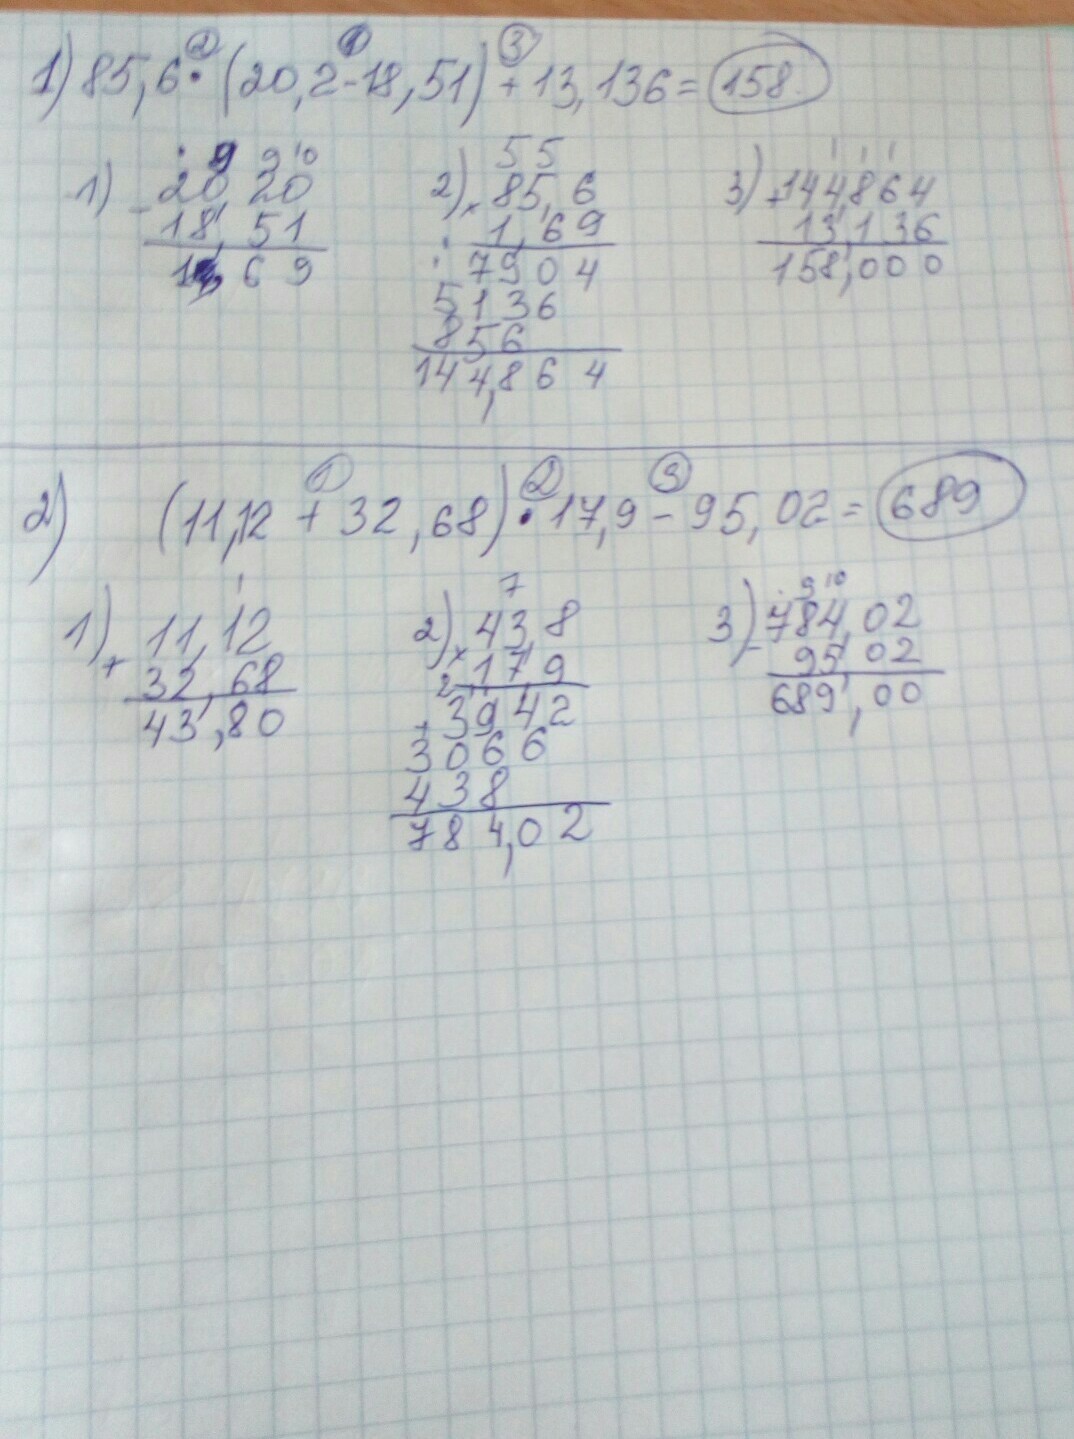 ② ① ③
1) 85,6 · (20,2 - 18,51) + 13,136 = 158.
9 9 10
1) - 20,20
18,51
1,69
5 5
2) × 85,6
1,69
7904
5136
856
144,864
1 1 1
3) + 144,864
13,136
158,000
① ② ③
2) (11,12 + 32,68) · 17,9 - 95,02 = 689
1
1) + 11,12
32,68
43,80
7
2) × 43,8
17,9
2
+ 3942
3066
438
784,02
9 10
3) - 784,02
95,02
689,00